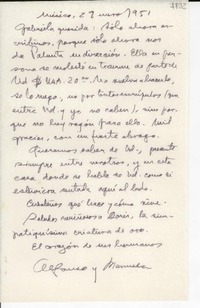 México, 27 enero 1951
Gabriela querida: Sólo ahora es-
cribimos, porque sólo ahora nos
da Palmita su dirección. Ella en per-
sona se molestó en traernos de parte de
Ud $ USA. 20.00. No vuelva a hacerlo,
se lo ruego,
entre Ud. y yo, no caben), sino por-
que no hay razón para ello. Mil
gracias, con un fuerte abrazo.
Queremos saber de Ud., presente
siempre entre nosotros, y en esta
casa donde se habla de Ud. como si
estuviera sentada aquí al lado.
Cuéntenos qué hace y cómo sigue.
Saludos cariñosos Doris, la sim-
patiquísima criatura de oro.
El corazón de sus hermanos
Alfonso y Manuela